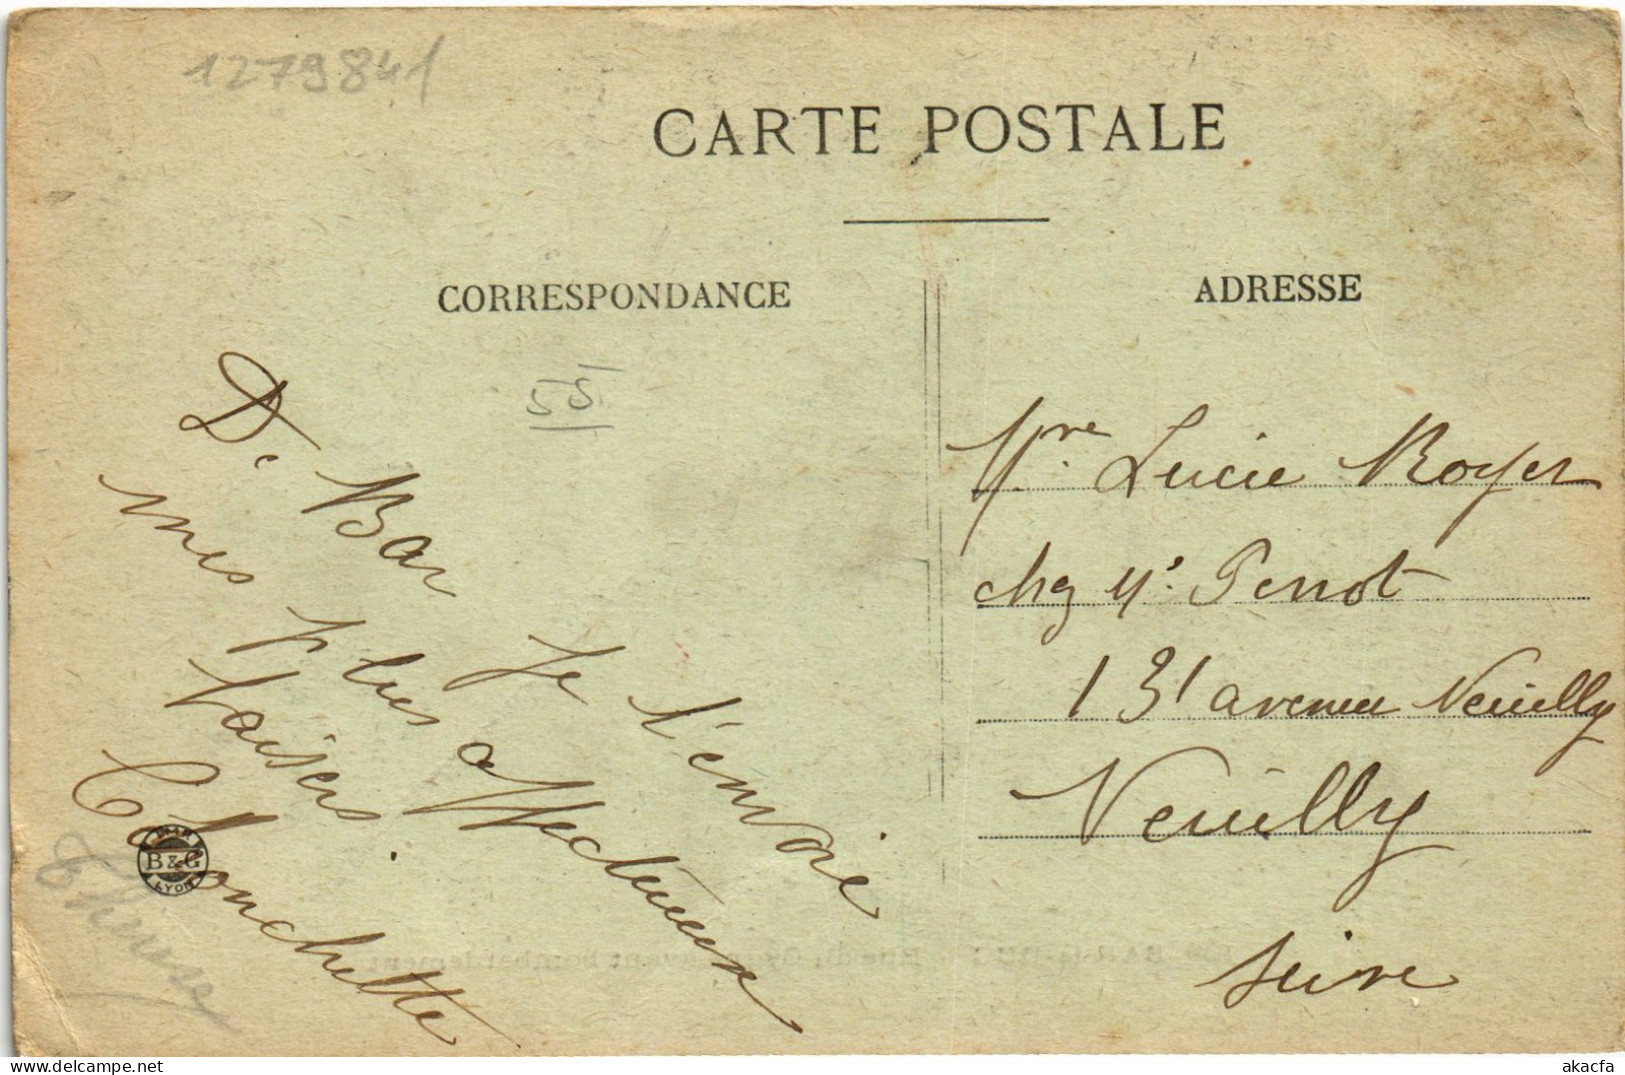 1279841
CARTE POSTALE
CORRESPONDANCE
ADRESSE
55
De Bar Je t'envoie
mes plus affectueux
baisers.
Blanchette
Mre Lucie Royer
chez Mr Perrot
131 avenue Neuilly
Neuilly
Seine
STAR
B & G
LYON
BAR-le-DUC - Rue du Cygne avant bombardement
akacfa